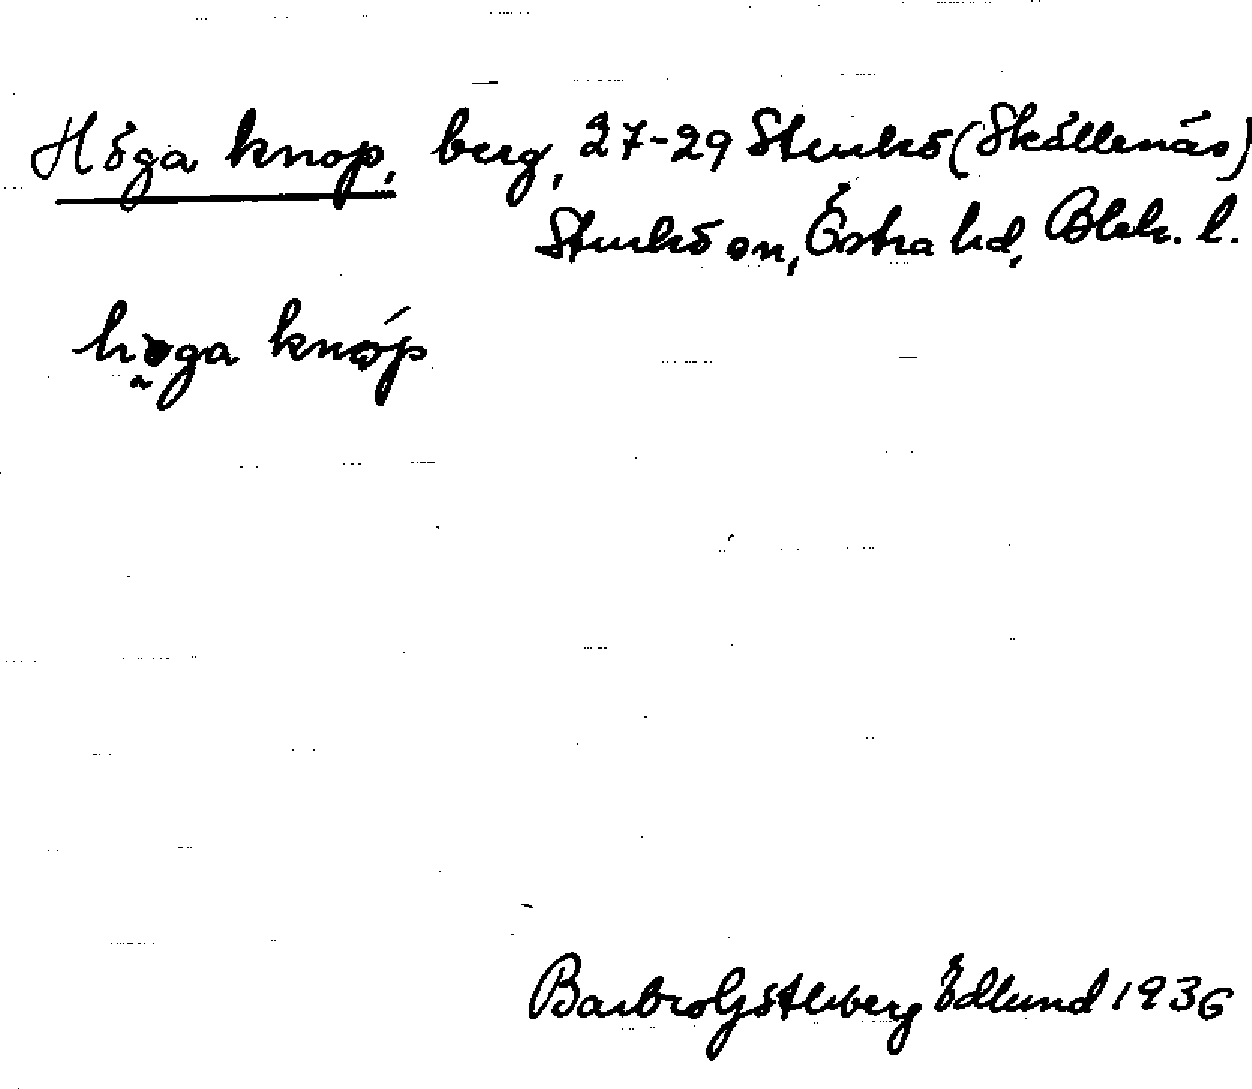 Höga knop, berg, 27-29 Sturkö (Skällenäs)
Sturkö sn, Östra hd, Blek. l.
höga knóp
Barbro Götlberg Edlund 1936